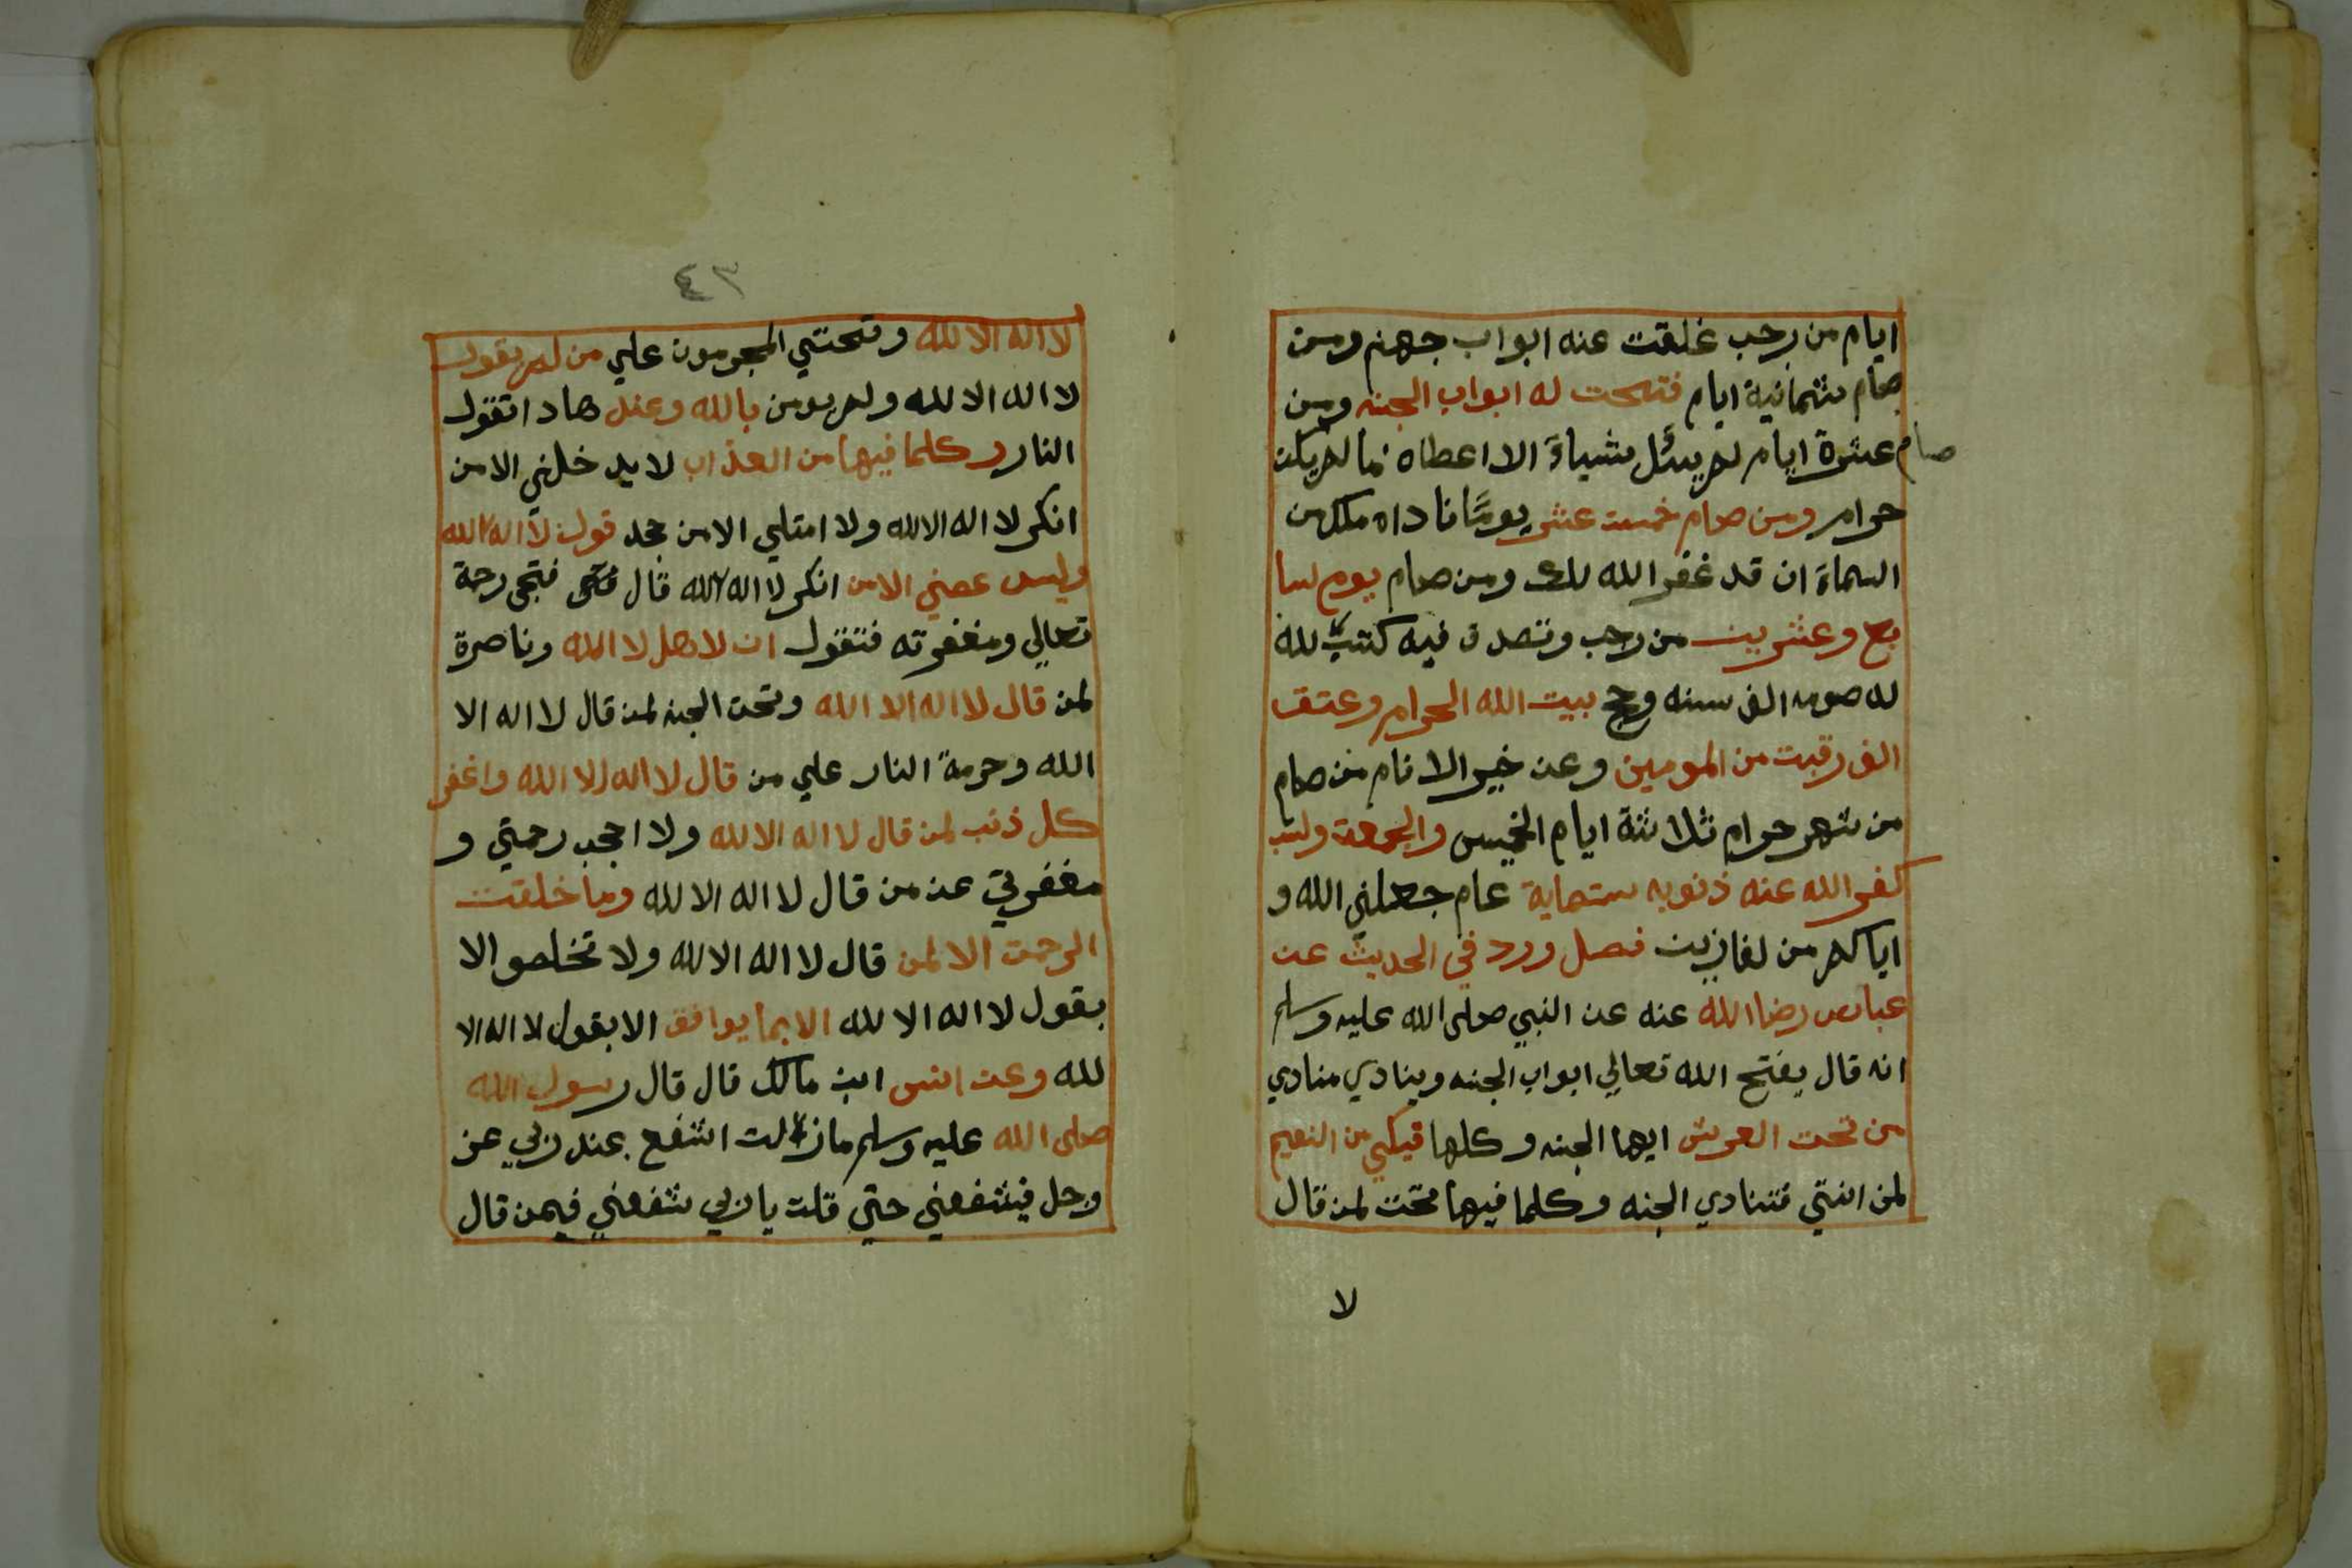 ايام من رجب غلقت عنه ابواب جهنم ومن
صام ثمانية ايام فتحت له ابواب الجنه ومن
صام عشرة ايام لم يسئل شياءً الا اعطاه ما لم يكن
حرام ومن صام خمست عشر يومًا ناداه ملك من
السماء ان قد غفر الله لك ومن صام يوم سا
بع وعشرين من رجب وتصدق فيه كتب لله
له صوم الف سنه وحج بيت الله الحرام وعتق
الف رقبت من المومين وعن خير الانام من صام
من شهر حرام ثلاثة ايام الخميس والجمعة ولسبت
كفر الله عنه ذنوبه ستماية عام جعلني الله و
اياكم من لفازين فصل ورد في الحديث عن
عباس رضا الله عنه عن النبي صلى الله عليه وسلم
انه قال يفتح الله تعالي ابواب الجنه وينادي منادي
من تحت العرش ايها الجنه وكلما فيكي من النعيم
لمن انتي فتنادي الجنه وكلما فيها نحن لمن قال
لا
٤٣
لا اله الا لله و المجرمون علي من لم يقول
لا اله الا لله ولم يومن بالله وعند هادا تقول
النار وكلما فيها من العذاب لا يدخلني الا من
انكر لا اله الا لله ولا امتلي الا من جحد قول لا اله الا الله
وليس عصني الا من انكر لا اله الا الله قال فتجي رحمة
تعالي ومغفرته فتقول ان لاهل لا الله وناصرة
لمن قال لا اله الا الله وتحت الجنه لمن قال لا اله الا
الله وحرمة النار علي من قال لا اله الا الله واغفر
كل ذنب لمن قال لا اله الا لله ولا احجب رحمتي و
مغفرتي عن من قال لا اله الا لله وما خلقت
الرحمت الا لمن قال لا اله الا لله ولا تخلصو الا
بقول لا اله الا لله الا بما يوافق الا بقول لا اله الا
لله وعن انس ابن مالك قال قال رسول الله
صلى الله عليه وسلم ما زلت اشفع عند ربي عز
وجل فيشفعني حتي قلت يا ربي شفعني فيمن قال